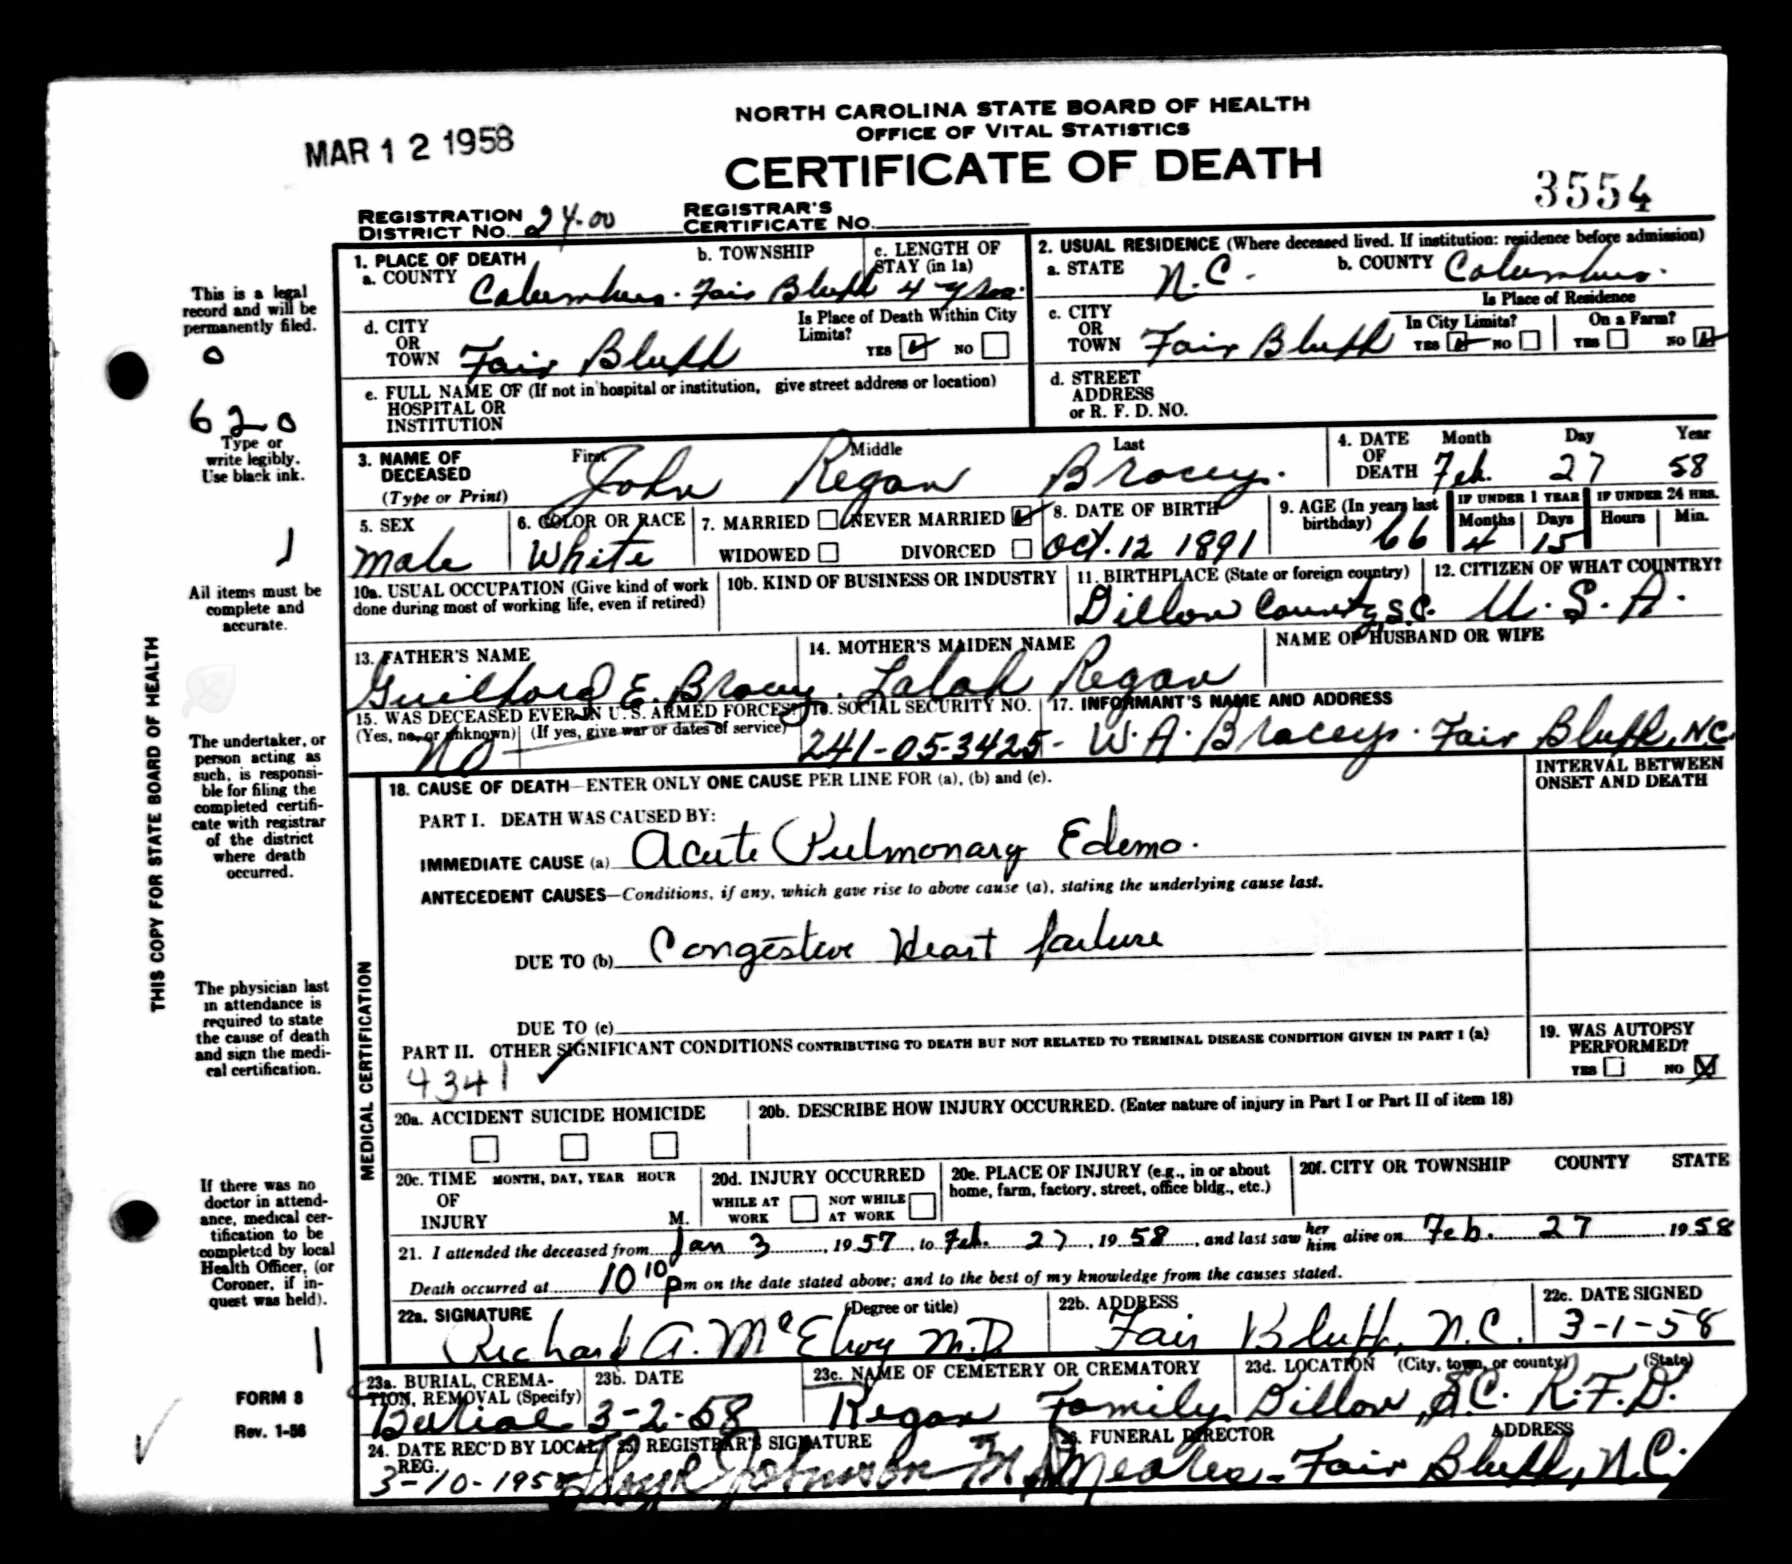 MAR 12 1958
NORTH CAROLINA STATE BOARD OF HEALTH
OFFICE OF VITAL STATISTICS
CERTIFICATE OF DEATH
3554
REGISTRATION DISTRICT No. 24-00 REGISTRAR'S CERTIFICATE No.
1. PLACE OF DEATH
a. COUNTY Columbus. b. TOWNSHIP Fair Bluff c. LENGTH OF STAY (in 1a) 4 yrs.
2. USUAL RESIDENCE (Where deceased lived. If institution: residence before admission)
a. STATE N.C. b. COUNTY Columbus.
d. CITY OR TOWN Fair Bluff Is Place of Death Within City Limits? YES NO
c. CITY OR TOWN Fair Bluff Is Place of Residence In City Limits? YES NO On a Farm? YES NO
e. FULL NAME OF (If not in hospital or institution, give street address or location) HOSPITAL OR INSTITUTION
d. STREET ADDRESS or R. F. D. NO.
3. NAME OF DECEASED (Type or Print) First John Middle Regan Last Bracey.
4. DATE OF DEATH Month Feb. Day 27 Year 58
5. SEX Male 6. COLOR OR RACE White 7. MARRIED NEVER MARRIED WIDOWED DIVORCED
8. DATE OF BIRTH Oct. 12 1891 9. AGE (In years last birthday) 66 IF UNDER 1 YEAR Months 4 Days 15 IF UNDER 24 HRS. Hours Min.
10a. USUAL OCCUPATION (Give kind of work done during most of working life, even if retired) 10b. KIND OF BUSINESS OR INDUSTRY
11. BIRTHPLACE (State or foreign country) Dillon County, S.C. 12. CITIZEN OF WHAT COUNTRY? U.S.A.
13. FATHER'S NAME Guilford E. Bracey. 14. MOTHER'S MAIDEN NAME Lalah Regan NAME OF HUSBAND OR WIFE
15. WAS DECEASED EVER IN U. S. ARMED FORCES? (Yes, no, or unknown) (If yes, give war or dates of service) No
16. SOCIAL SECURITY NO. 241-05-3425- 17. INFORMANT'S NAME AND ADDRESS W.A. Bracey. Fair Bluff, N.C.
18. CAUSE OF DEATH—ENTER ONLY ONE CAUSE PER LINE FOR (a), (b) and (c).
INTERVAL BETWEEN ONSET AND DEATH
PART I. DEATH WAS CAUSED BY:
IMMEDIATE CAUSE (a) Acute Pulmonary Edema.
ANTECEDENT CAUSES—Conditions, if any, which gave rise to above cause (a), stating the underlying cause last.
DUE TO (b) Congestive Heart failure
DUE TO (c)
PART II. OTHER SIGNIFICANT CONDITIONS CONTRIBUTING TO DEATH BUT NOT RELATED TO TERMINAL DISEASE CONDITION GIVEN IN PART I (a)
4341
19. WAS AUTOPSY PERFORMED? YES NO
20a. ACCIDENT SUICIDE HOMICIDE 20b. DESCRIBE HOW INJURY OCCURRED. (Enter nature of injury in Part I or Part II of item 18)
20c. TIME OF INJURY MONTH, DAY, YEAR HOUR M. 20d. INJURY OCCURRED WHILE AT WORK NOT WHILE AT WORK
20e. PLACE OF INJURY (e.g., in or about home, farm, factory, street, office bldg., etc.) 20f. CITY OR TOWNSHIP COUNTY STATE
21. I attended the deceased from Jan 3, 1957, to Feb. 27, 1958, and last saw her him alive on Feb. 27 1958
Death occurred at 10 10 pm on the date stated above; and to the best of my knowledge from the causes stated.
22a. SIGNATURE (Degree or title) Richard A. McElroy M.D. 22b. ADDRESS Fair Bluff, N.C. 22c. DATE SIGNED 3-1-58
23a. BURIAL, CREMATION, REMOVAL (Specify) Burial 23b. DATE 3-2-58 23c. NAME OF CEMETERY OR CREMATORY Regan Family 23d. LOCATION (City, town, or county) (State) Dillon, S.C. R.F.D.
24. DATE REC'D BY LOCAL REG. 3-10-1958 25. REGISTRAR'S SIGNATURE Floyd Johnson 26. FUNERAL DIRECTOR Meares - ADDRESS Fair Bluff, N.C.
MEDICAL CERTIFICATION
THIS COPY FOR STATE BOARD OF HEALTH
This is a legal
record and will be
permanently filed.
0
620
Type or
write legibly.
Use black ink.
1
All items must be
complete and
accurate.
The undertaker, or
person acting as
such, is responsi-
ble for filing the
completed certifi-
cate with registrar
of the district
where death
occurred.
The physician last
in attendance is
required to state
the cause of death
and sign the medi-
cal certification.
If there was no
doctor in attend-
ance, medical cer-
tification to be
completed by local
Health Officer, (or
Coroner, if in-
quest was held).
1
FORM 8
Rev. 1-56